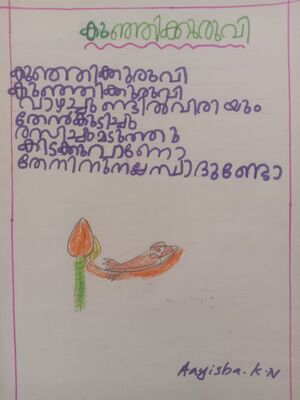 കുഞ്ഞിക്കുരുവി
കുഞ്ഞിക്കുരുവി
കുഞ്ഞിക്കുരുവി
വാഴച്ചുണ്ടിൽവിരിയും
തേൻകുടിച്ചു
രസിച്ചുമടുത്തു
കിടക്കുവാണോ
തേനിനുനല്ലസ്വാദുണ്ടോ
Aayisba.K.N